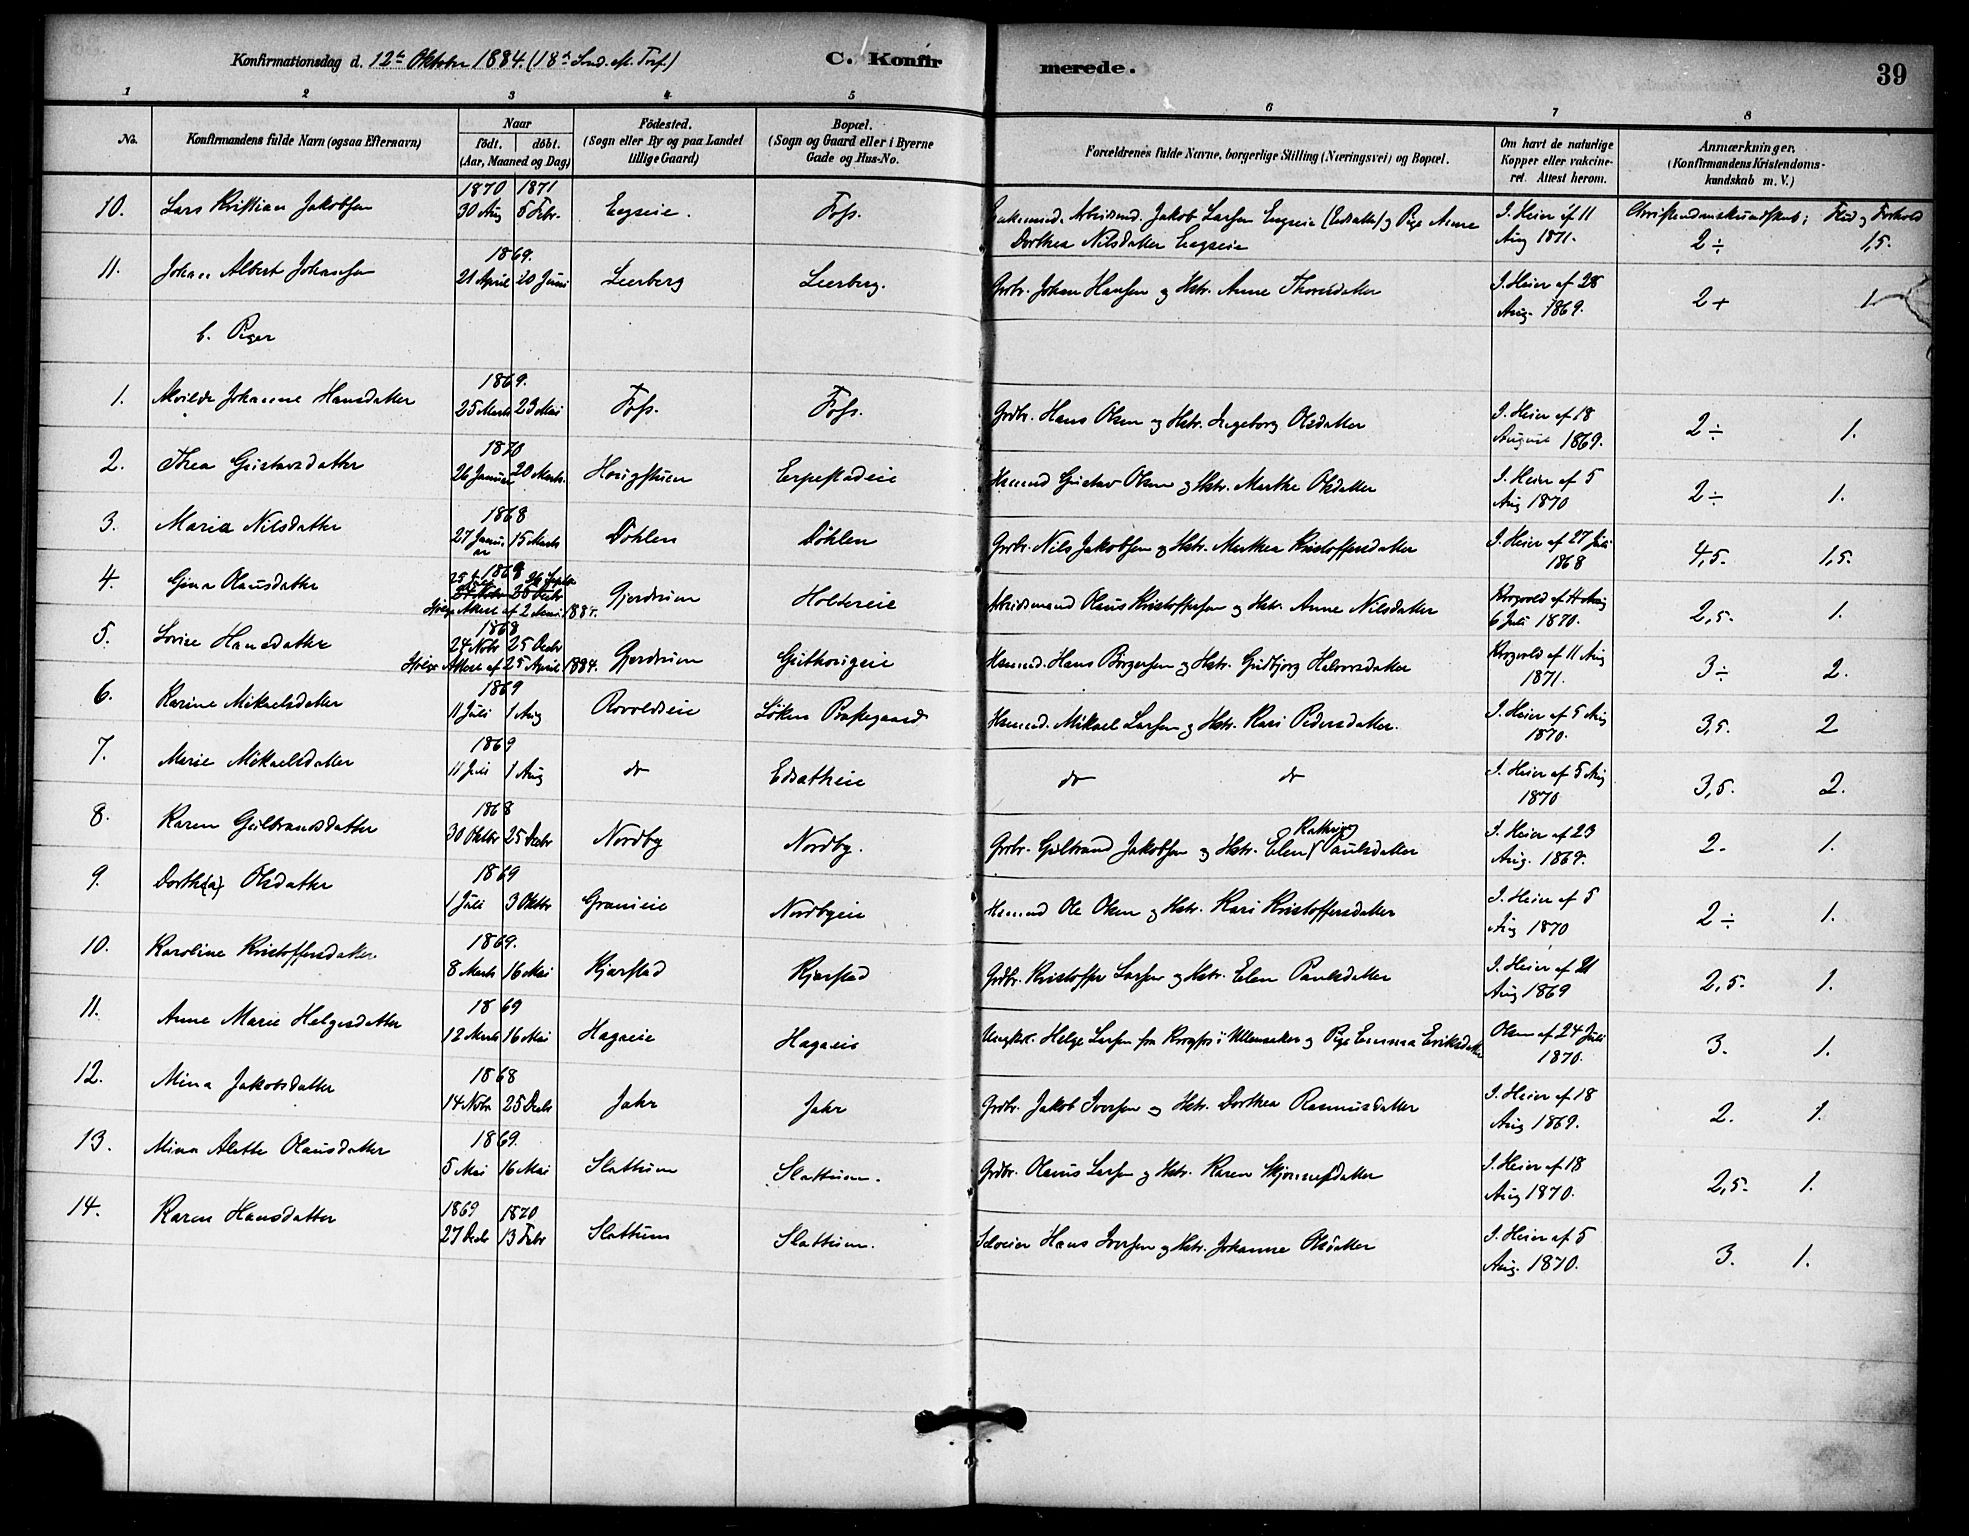 Konfirmationsdag d. 12te Oktober 1884. (18de Sønd. ef. Tref.) C. Konfirmerede. 39
1 2 3 4 5 6 7 8
No. Konfirmandens fulde Navn (ogsaa Efternavn) Naar födt. döbt. (Aar, Maaned og Dag) Födested. (Sogn eller By og paa Landet tillige Gaard) Bopæl. (Sogn og Gaard eller i Byerne Gade og Hus-No. Forældrenes fulde Navne, borgerlige Stilling (Næringsvei) og Bopæl. Om havt de naturlige Kopper eller vakcineret. Attest herom. Anmærkninger. (Konfirmandens Kristendomskundskab m. V.)
1870 1871
10. Lars Kristian Jakobsen 30 Aug 5 Febr. Foss. Arbeidsmd. Jakob Larsen og Pige Anne J. Heier af 11 Christendomskundskab; Flid og Forhold
Dorthea Nilsdatter Aug 1871. 2 ÷ 1,5.
1869.
11. Johan Albert Johansen 21 April 20 Juni Leerberg Leerberg. Grdbr. Johan Hansen og Hstr. Anne Thorsdatter J. Heier af 28
Aug. 1869. 2 + 1.
b. Piger
1869.
1. Alvilde Johanne Hansdatter 25 Marts 23 Mai Foss. Foss. Grdbr. Hans Olsen og Hstr. Ingeborg Olsdatter J. Heier af 18
August 1869. 2 ÷ 1.
1870
2. Thea Gustavsdatter 26 Januar 20 Marts. Erpestadeie Husmd Gustav Olsen og Hstr. Marthe Olsdatter J. Heier af 5
Aug 1870 2 ÷ 1.
1868
3. Maria Nilsdatter 27 Januar 15 Marts Döhlen Döhlen Grdbr. Nils Jakobsen og Hstr. Marthea Kristoffersdatter J. Heier af 27 Juli
1868 4,5. 1,5.
4. Gina Olausdatter 1869 Gjerdrum Holtereie Arbeidsmand Olaus Kristoffersen og Hstr. Anne Nilsdatter
ifølge Attest af 2 1884. 6 Juli 1870. 2,5. 1.
1868
5. Lovise Hansdatter 24 Novbr 25 Decbr Gjerdrum Husmd. Hans Børgersen og Hstr. Gudbjørg Halvorsdatter Krogvold af 11 Aug
ifølge Attest af 25 April 1884. 1871. 3 ÷ 2.
1869
6. Karine Mikaelsdatter 11 Juli 1 Aug Rovoldseie Løken Præstegaard Husmd. Mikael Larsen og Hstr. Kari Pedersdatter. J. Heier af 5 Aug
1870. 3,5. 2
1869
7. Marie Mikaelsdatter 11 Juli 1 Aug do do do J. Heier af 5 Aug
1870 3,5. 2.
1868
8. Karen Gulbrandsdatter 30 Oktbr 25 Decbr Nordby Nordby. Grdbr. Gulbrand Jakobsen og Hstr. Elen Kathrine Paulsdatter J. Heier af 23
Aug. 1869. 2. 1.
1869
9. Dorth(ea) Olsdatter 1 Juli 3 Oktbr Nordbyeie Husmd Ole Olsen og Hstr. Kari Kristoffersdatter J. Heier af 5
Aug 1870 2 ÷ 1.
1869.
10. Karoline Kristoffersdatter 8 Marts 16 Mai Kjærstad Kjærstad Grdbr. Kristoffer Larsen og Hstr. Elen Paulsdatter J. Heier af 21
Aug 1869 2,5. 1.
1869
11. Anne Marie Helgesdatter 12 Marts 16 Mai Hagaeie Hagaeie Ungkrl. Helge Larsen fra Krogfos i Ullensaker og Pige Emma Eriksdatter Olsen af 24 Juli
1870. 3. 1.
1868
12. Mina Jakobsdatter 14 Novbr 25 Decbr Jahr Jahr Grdbr. Jakob Iversen og Hstr. Dorthea Rasmusdatter J. Heier af 18
Aug 1869. 2. 1.
1869.
13. Mina Alette Olausdatter 5 Mai 16 Mai Slattum Slattum. Grdbr. Olaus Larsen og Hstr. Karen J. Heier af 18
Aug 1870. 2,5. 1.
1869 1870
14. Karen Hansdatter 27 Decbr 13 Febr Slattum Slattum. Selveier Hans Iversen og Hstr. Johanne Olsdatter J. Heier af 5
Aug. 1870. 3. 1.